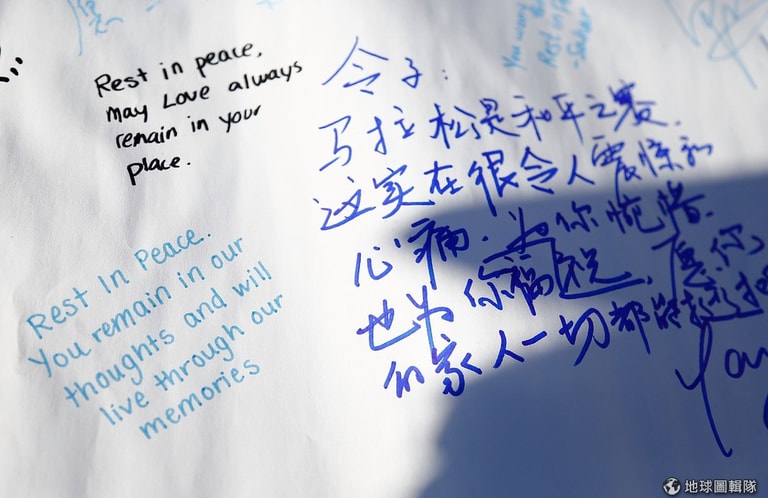 Rest in peace,
may Love always
remain in your
place.
Rest In Peace.
You remain in our
thoughts and will
live through our
memories
令子:
马拉松是和平之赛.
这实在很令人震惊和
心痛. 为你惋惜.
也为你福祝, 愿你
的家人一切都能
You
Rest in P
地球圖輯隊